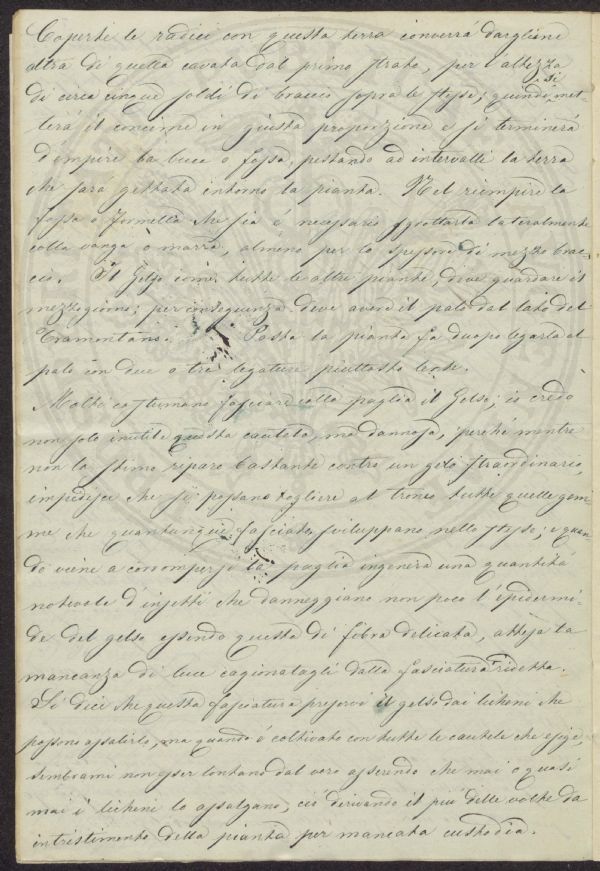 Coperte le radici con questa terra converrá dargliene
altra di quella cavata dal primo strato, per l'altezza
di circa cinque soldi di braccio sopra le stesse; quindi si met-
terá il concime in giusta proporzione e si terminerá
d'empire la buca o fossa, pestando ad intervalli la terra
che sará gettata intorno la pianta. Nel riempire la
fossa o formella che sia é necessario sgrottarla lateralmente
colla vanga o marra, almeno per lo spessore di mezzo brac-
cio. Il Gelso come tutte le altre piante, deve guardare il
mezzogiorno; per conseguenza deve avere il palo dal lato del
Tramontano. Posta la pianta fa duopo legarla al
palo con due o tre legature piuttosto lente.
Molti costumano fasciare colla paglia il Gelso; io credo
non solo inutile questa cautela, ma dannosa, perché mentre
non la stimo riparo bastante contro un gelo straordinario,
impedisce che si possano togliere al tronco tutte quelle gem
me che quantunque fasciato sviluppano nello stesso; e quan
do viene a corrompersi la paglia ingenera una quantitá
notevole d'insetti che danneggiano non poco l'epidermi-
de del gelso essendo questa di fibra delicata, attesa la
mancanza di luce cagionatagli dalla fasciatura ridetta.
Si dice che questa fasciatura preservi il gelso dai licheni che
possono assalirlo, ma quando é coltivato con tutte le cautele che esige,
sembrami non esser lontano dal vero asserendo che mai o quasi
mai i licheni lo assalgano, ció derivando il piú delle volte da
intristimento della pianta per mancata custodia.